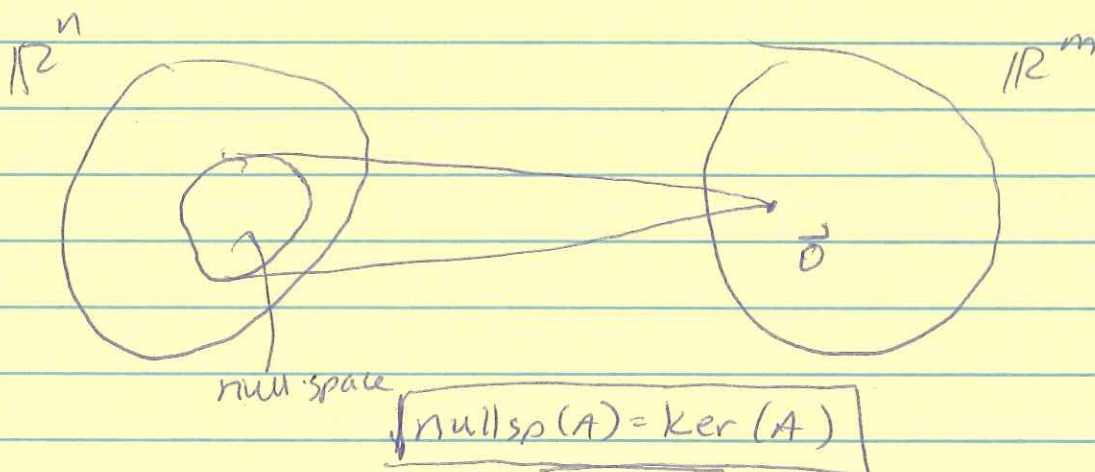 ℝⁿ
ℝᵐ
0⃗
null space
nullsp(A) = ker(A)